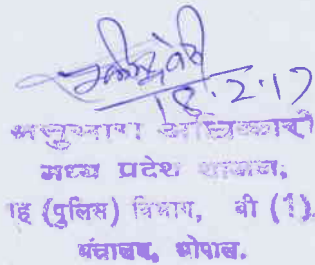 18.2.17
अनुभाग अधिकारी
मध्य प्रदेश शासन,
गृह (पुलिस) विभाग, बी (1).
मंत्रालय, भोपाल.